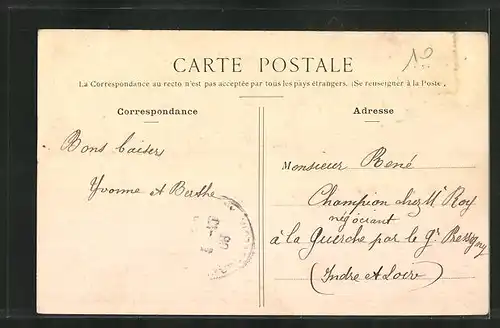 10
CARTE POSTALE
La Correspondance au recto n'est pas acceptée par tous les pays étrangers. (Se renseigner à la Poste.)
Correspondance
Adresse
Bons baisers
Yvonne et Berthe
Monsieur René
Champion chez Mr Roy
négociant
à la Guerche par le Gd Pressigny
(Indre et Loire)